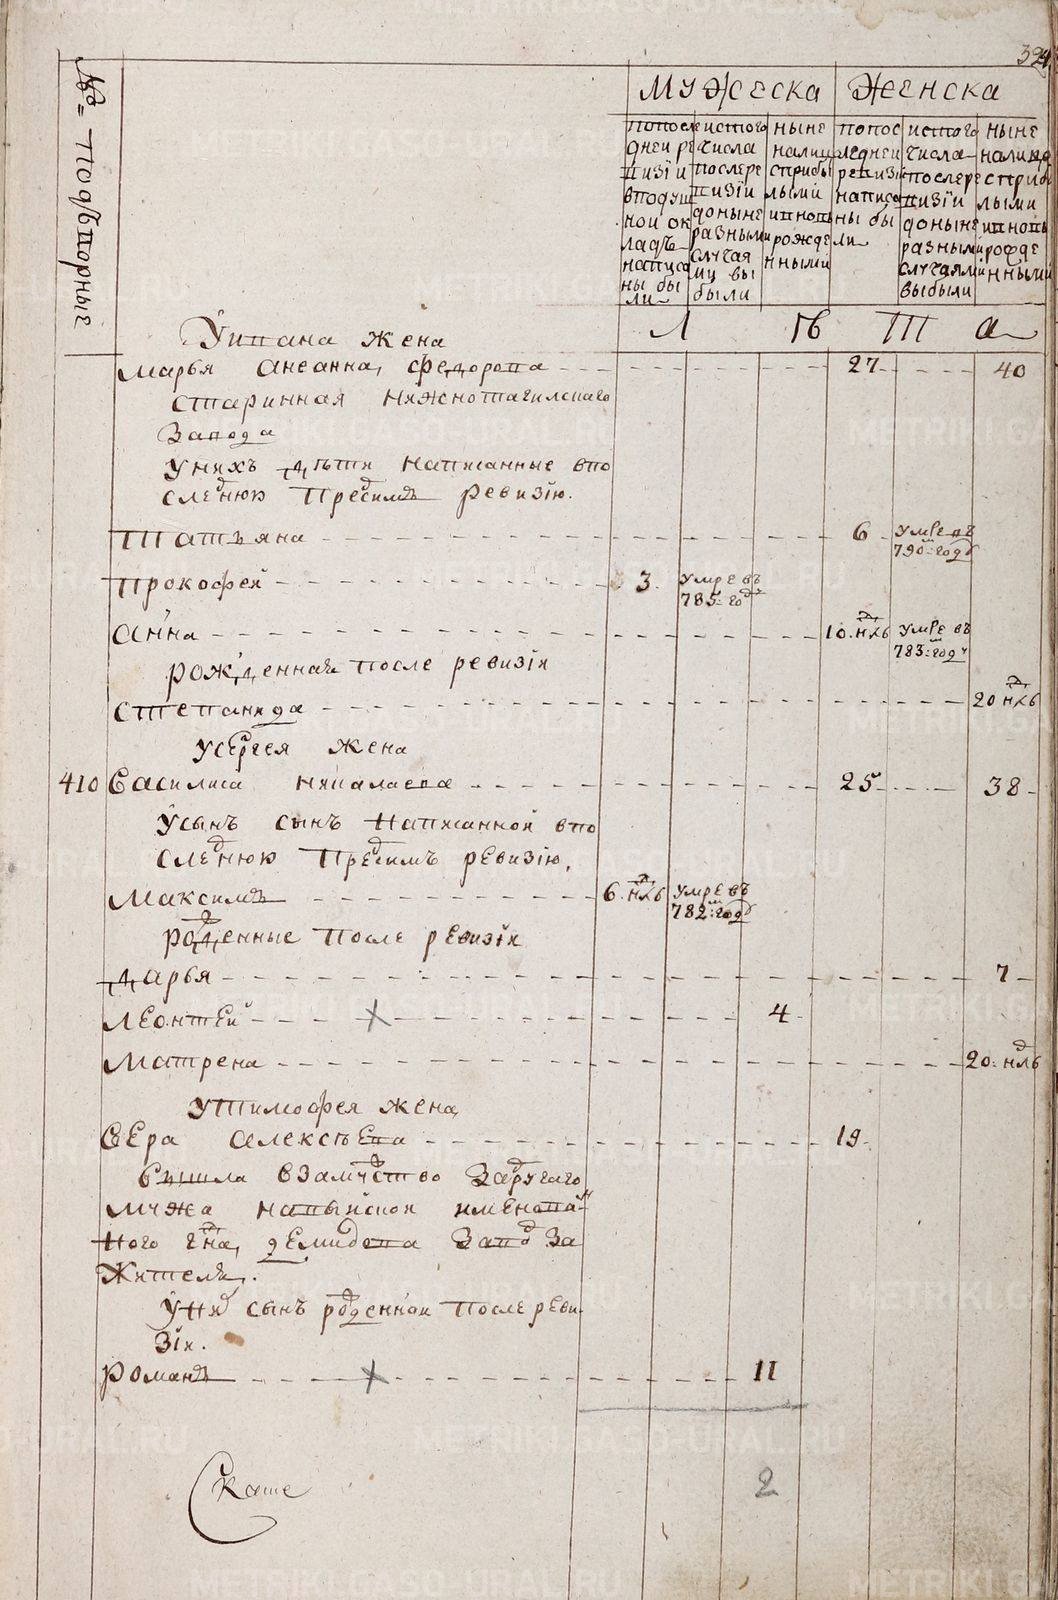 324
№ Подворные
Мужеска Женска
попосле
дней ре
визіи
вподуш
ной ок
ладъ
написа
ны бы
ли
истого
числа
послере
визіи
доныне
разными
случая
ми вы
были
ныне
налиц
сприбы
лыми
ивновь
рожде
нными
попос
ледней
ревизіи
написа
ны бы
ли
истого
числа
послере
визіи
доныне
разными
случаями
выбыли
ныне
налицо
сприбы
лыми
ивновь
рожде
нными
Л ѣ т а
Уивана жена
Марья Ивана, Федорова 27 40
старинная нижнотагилскаго
завода
Унихъ дѣти написанные впо
следнюю пред симъ ревизію.
Татьяна 6 умре въ
790: году
Прокофей 3 умре въ
785: году
Анна 10 нд умре въ
783: году
рожденная после ревизіи
Степанида 20 нд
Усергея жена
410 Василиса Николаева 25 38
Усынъ сынъ написанной впо
следнюю пред симъ ревизію,
Максимъ 6 нд умре въ
782: году
рожденные после ревизіи
Дарья 7
Леонтей 4
Матрена 20 нд
Утимофея жена
Вера Алексѣева 19
вышла взамуство задругаго
мужа
ного гна, демидова завод за
жителя.
У ней сынъ рожденной после реви
зіи.
Романъ 11
2